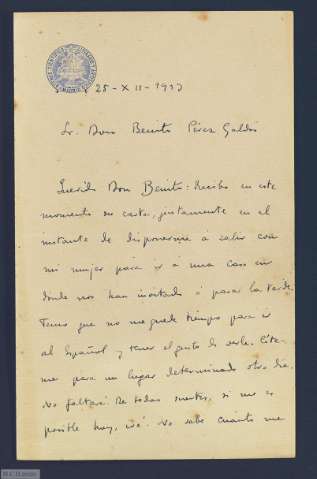 25-XII-1917
Sr. Don Benito Pérez Galdós
Querido Don Benito: Recibo en este
momento su carta, justamente en el
instante de disponerme a salir con
mi mujer para ir á una casa en
donde nos han invitado á pasar la tarde.
Temo que no me quede tiempo para ir
al Español y tener el gusto de verle. Cíte-
me para un lugar determinado otro día.
No faltaré. De todas suertes, si me es
posible hoy, iré. No sabe cuánto me